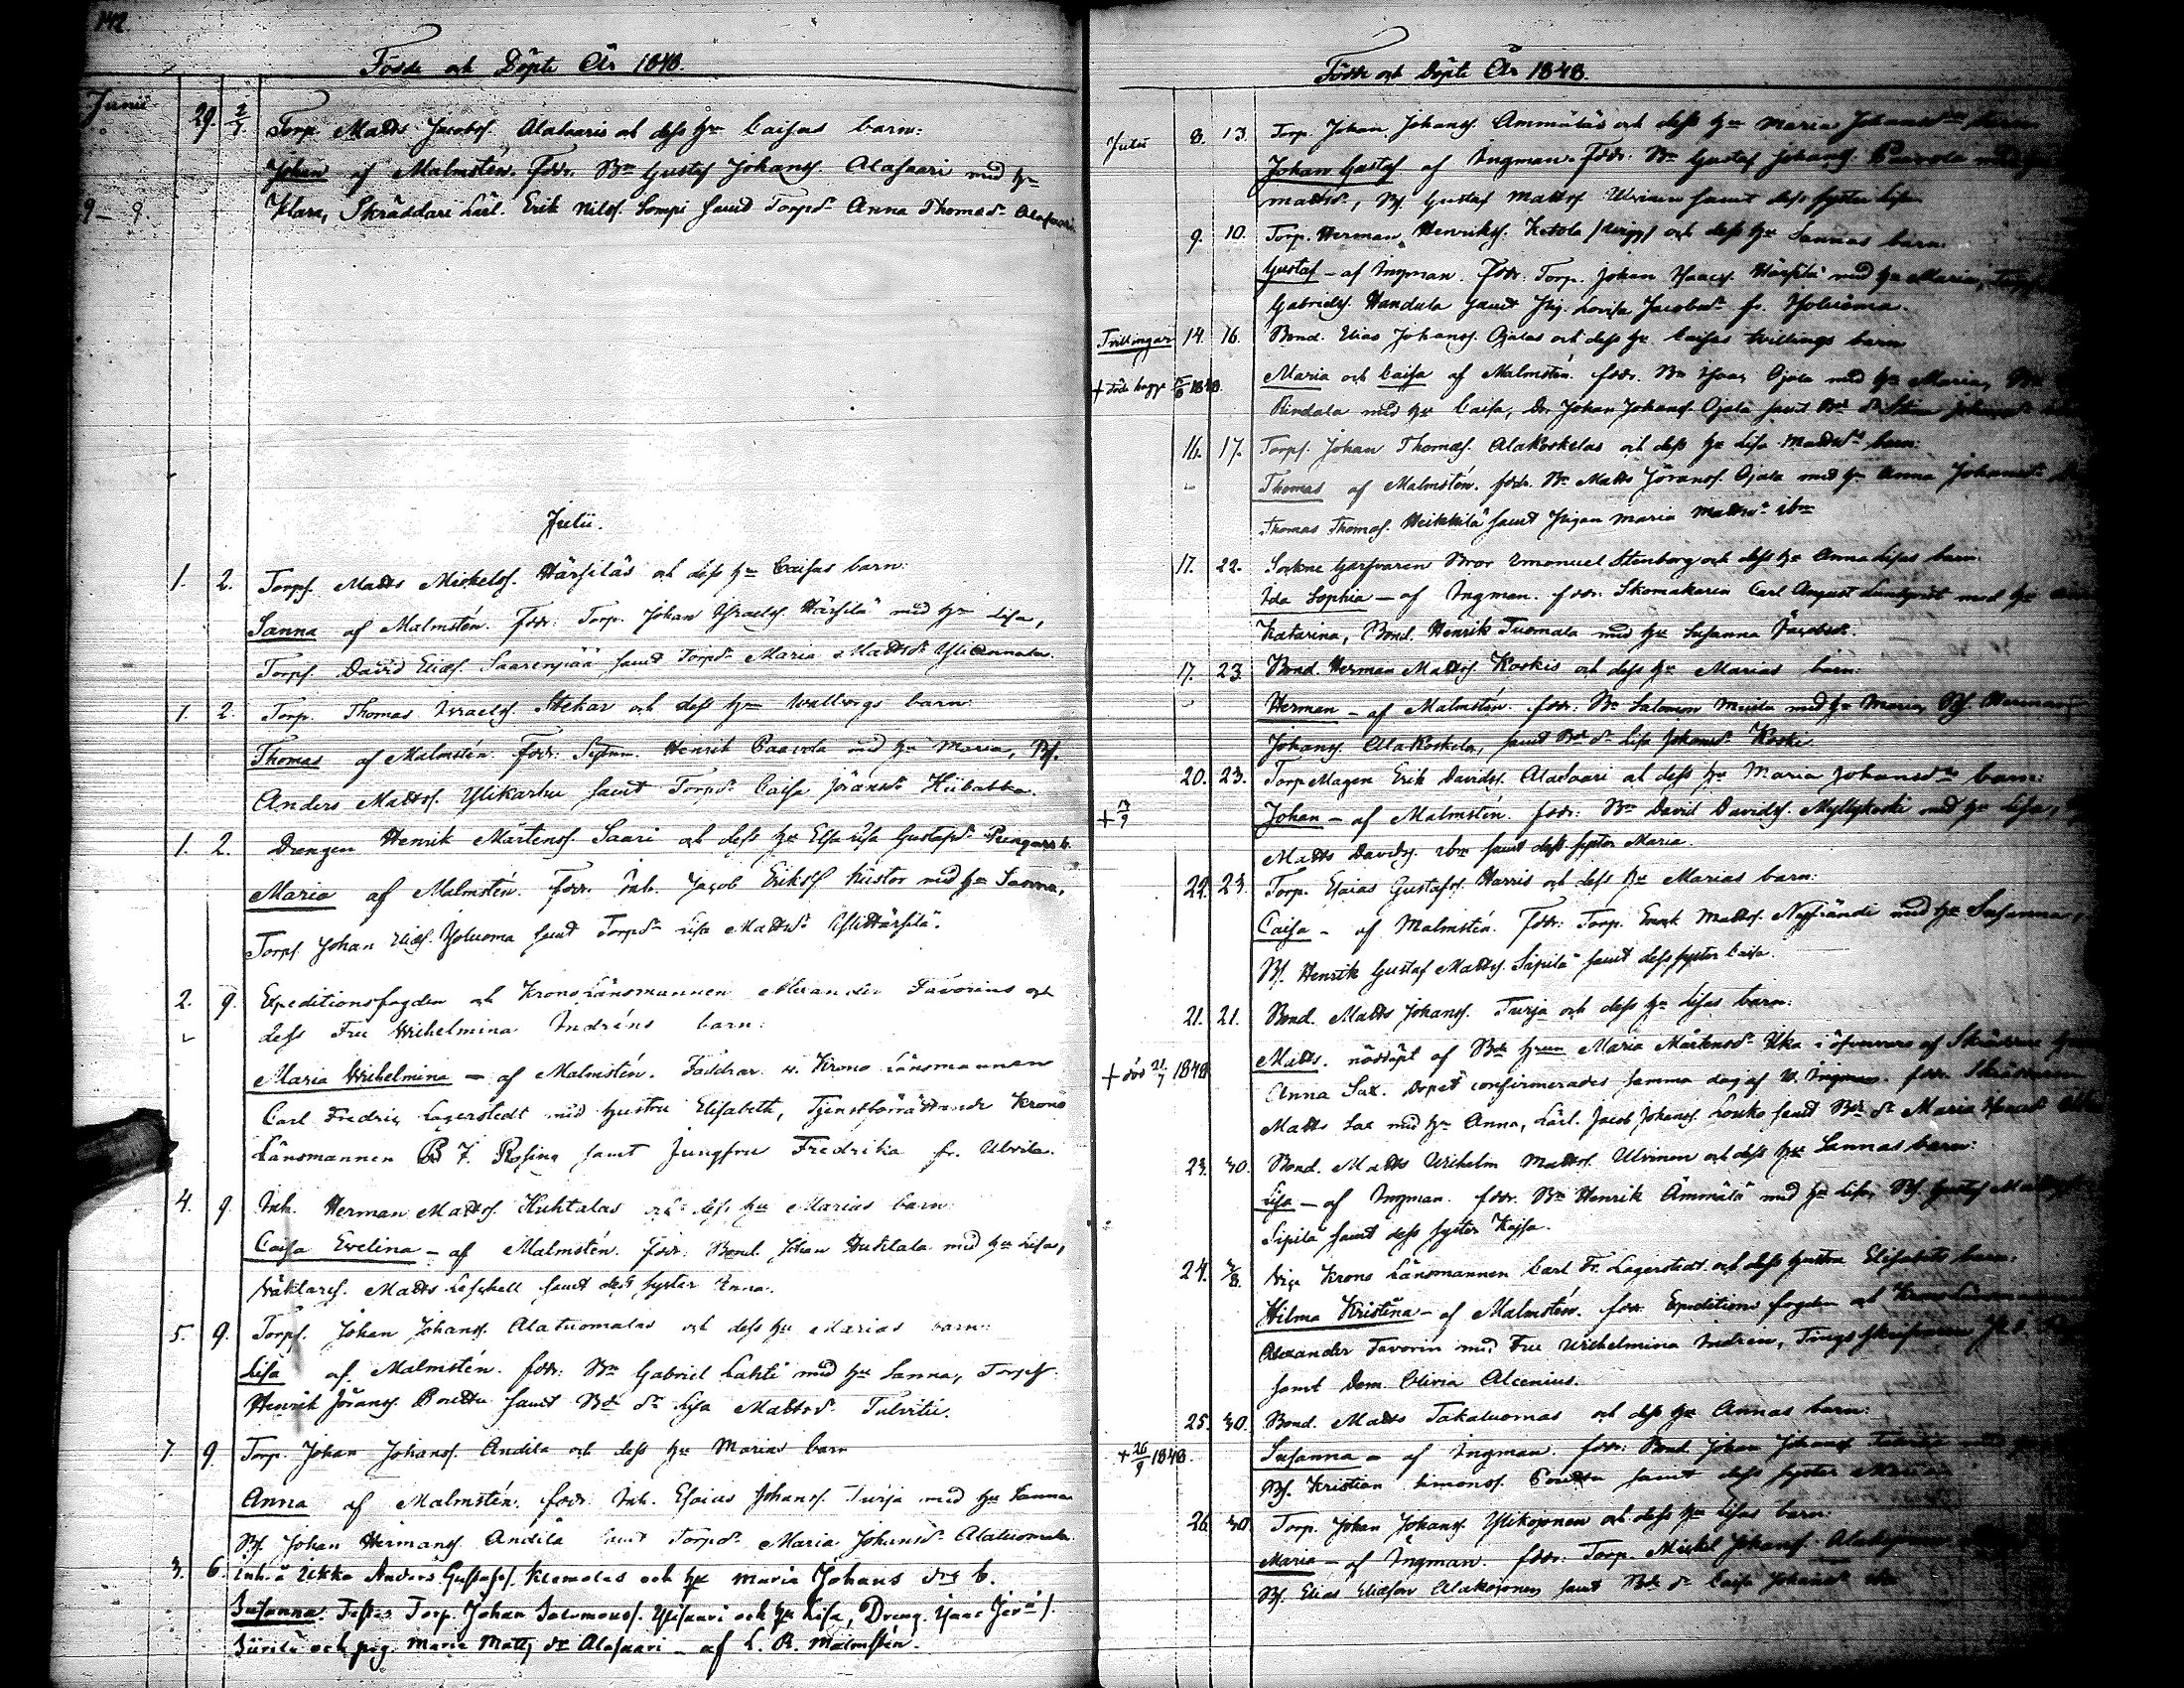 142.
Födde och Döpte År 1848.
Junii
29. 2/7. Torp. Matts Jacobss. Alasaaris och dess hu Caisas barn:
Johan af Malmstén. Fadr. Bn Gustaf Johanss. Alasaari med hu
9 – 9. Klara, Skräddare Lärl. Erik Nilss. Lompi samt Torpdr Anna Thomasdr Alasaari
Julii.
1. 2. Torps. Matts Mickelss. Härsiläs och dess hu Caisas barn:
Sanna af Malmstén. Fadr: Torp. Johan Israelss. Härsilä med hu Lisa,
Torps. David Eliass. Saarenpää samt Torpdr Maria Mattsdr
1. 2. Torp. Thomas Israelss. Stekar och dess hu Walborgs barn:
Thomas af Malmstén. Fadr: Henrik Paavola med hu Maria, Bs.
Anders Mattss. Ylikarhu samt Torpdr Caisa Jöransdr
1. 2. Drengen Henrik Mårtenss. Saari och dess hu Elsa Lisa Gustafsdr b.
Maria af Malmstén. Fadr. Inh. Jacob Erikss. med hu Sanna,
Torps. Johan Eliass. Yoluoma samt Torpdr Lisa Mattsdr YliHärsilä.
2. 9. Expeditionsfogden och Kronolänsmannen Alexander Favorins och
dess Fru Wilhelmina Indréns barn:
Maria Wilhelmina – af Malmstén. Faddrar v. Krono Länsmannen
Carl Fredric Lagerstedt med hustru Elisabeth, Tjenstförrättande Krono
Länsmannen B F. Rosing samt Jungfru Fredrika fr. Ulvila.
4. 9. Inh. Herman Mattss. Huhtalas och dess hu Marias barn:
Caisa Evelina – af Malmstén. Fadr: Bond. Johan Huhtala med hu Lisa,
Matts samt dess syster Anna.
5. 9. Torps. Johan Johanss. Alatuomalas och dess hu Marias barn:
Lisa af Malmstén. fadr: Bn Gabriel Lahti med hu Sanna, Torps.
Henrik Jöranss. Pouttu samt Bd dr Lisa Mattsdr
7. 9. Torp. Johan Johanss. Andila och dess hu Marias barn
Anna af Malmstén. fadr: Inh. Esaias Johanss. Turja med hu Sanna
Bs. Johan Hermanss. Andila samt Torpdr Maria Johansdr Alatuomala
3. 6. Inh.ä Ukko Anders Gustafss. Klemolas och hu Maria Johans drs b.
Susanna. Testes Torp. Johan Salomonss. Ylisaari och hu Lisa, Dreng. Isaac
och pig. Maria Matts dr Alasaari – af L. R. Malmstén.
Födde och Döpte År 1848.
Julii 8. 13. Torp. Johan Johanss. Ämmäläs och dess hu Maria
Johan Gustaf af Ingman. Fadr: Bn Gustaf Johanss. Paavola med
Mattsdr, Bs. Gustaf Mattss. Ulvinen samt dess syster Lisa
9. 10. Torp. Herman Henrikss. Ketola och dess hu Sannas barn:
Gustaf – af Ingman. Fadr: Torp. Johan Isaacs. Härsilä med hu Maria,
Gabrielss. Handula samt Pig. Lovisa Jacobsdr fr. Yoluoma.
Tvillingar 14. 16. Bond. Elias Johanss. Ojalas och dess hu Caisas tvillings barn
+ döde begge 1848. Maria och Caisa af Malmstén. fadr. Bn Isaac Ojala med hu Maria,
Rindala med hu Caisa, Dr. Johan Johanss. Ojala samt Bd dr
16. 17. Torps. Johan Thomass. Alakoskelas och dess hu Lisa Mattsdrs barn:
Thomas af Malmstén. fadr. Bn Matts Jöranss. Ojala med hu Anna Johansdr
Thomas Thomass. Heikkilä samt Pigan Maria Mattsdr ibm
17. 22. Sockne Garfvaren Bror Emanuel Stenborg och dess hu Anna Lisas barn:
Ida Sophia – af Ingman. fadr: Skomakaren Carl August Lundqvist med hu
Katarina, Bond. Henrik Tuomala med hu Susanna
17. 23. Bond. Herman Mattss. Koskis och dess hu Marias barn:
Herman – af Malmstén. fadr: Bn Salomon med hu Maria, Bs. Herman
Johanss. Alakoskela, samt Bd dr Lisa Johansdr Koski
20. 23. Torp Magen Erik Davidss. Alasaari och dess hu Maria Johansdrs barn:
+ Johan – af Malmstén. fadr: Bn David Davidss. Myllykoski med hu Lisa,
Matts Davidss. ibm samt dess syster Maria.
22. 23. Torp. Esaias Gustafss. Harris och dess hu Marias barn:
Caisa – af Malmstén. Fadr: Torp. Mattss. med hu Susanna,
Bs. Henrik Gustaf Mattss. Sipilä samt dess syster Caisa.
21. 21. Bond. Matts Johanss. Turja och dess hu Lisas barn:
+ död 21/7 1848 Matts. nöddöpt af Bde hun Maria Mårtensdr i öfvervaro af Skräddare
Anna Sax. Dopet confirmerades samma dag af W. Ingman. fadr. Skräddaren
Matts Sax med hu Anna, Lärl. Jacob Johanss. Louko samt Bd dr Maria
23. 30. Bond. Matts Wilhelm Mattss. Ulvinen och dess hu Sannas barn:
Lisa – af Ingman. fadr. Bn Henrik Ämmälä med hu Lisa, Bs. Gustaf
Sipilä samt dess syster Kajsa.
24. Vice Krono Länsmannen Carl Fr. Lagerstedt och dess hustru Elisabets barn:
Hilma Kristina – af Malmstén. fadr: Expeditions fogden och Krono
Alexander Favorin med Fru Wilhelmina Indren, Tings
samt Dem. Olivia Alcenius.
25. 30. Bond. Matts Takaluomas och dess hu Annas barn:
+ 26/9 1848. Susanna – af Ingman. fadr: Bond Johan Johanss.
Bs. Kristian Simonss. Pouttu samt dess syster Maria
26. 30. Torp. Johan Johanss. Ylikojonen och dess hu Lisas barn:
Maria – af Ingman. fadr: Torp. Mickel Johanss.
Bs. Elias Eliasson Alakojonen samt Bd dr Caisa Johansdr ibm